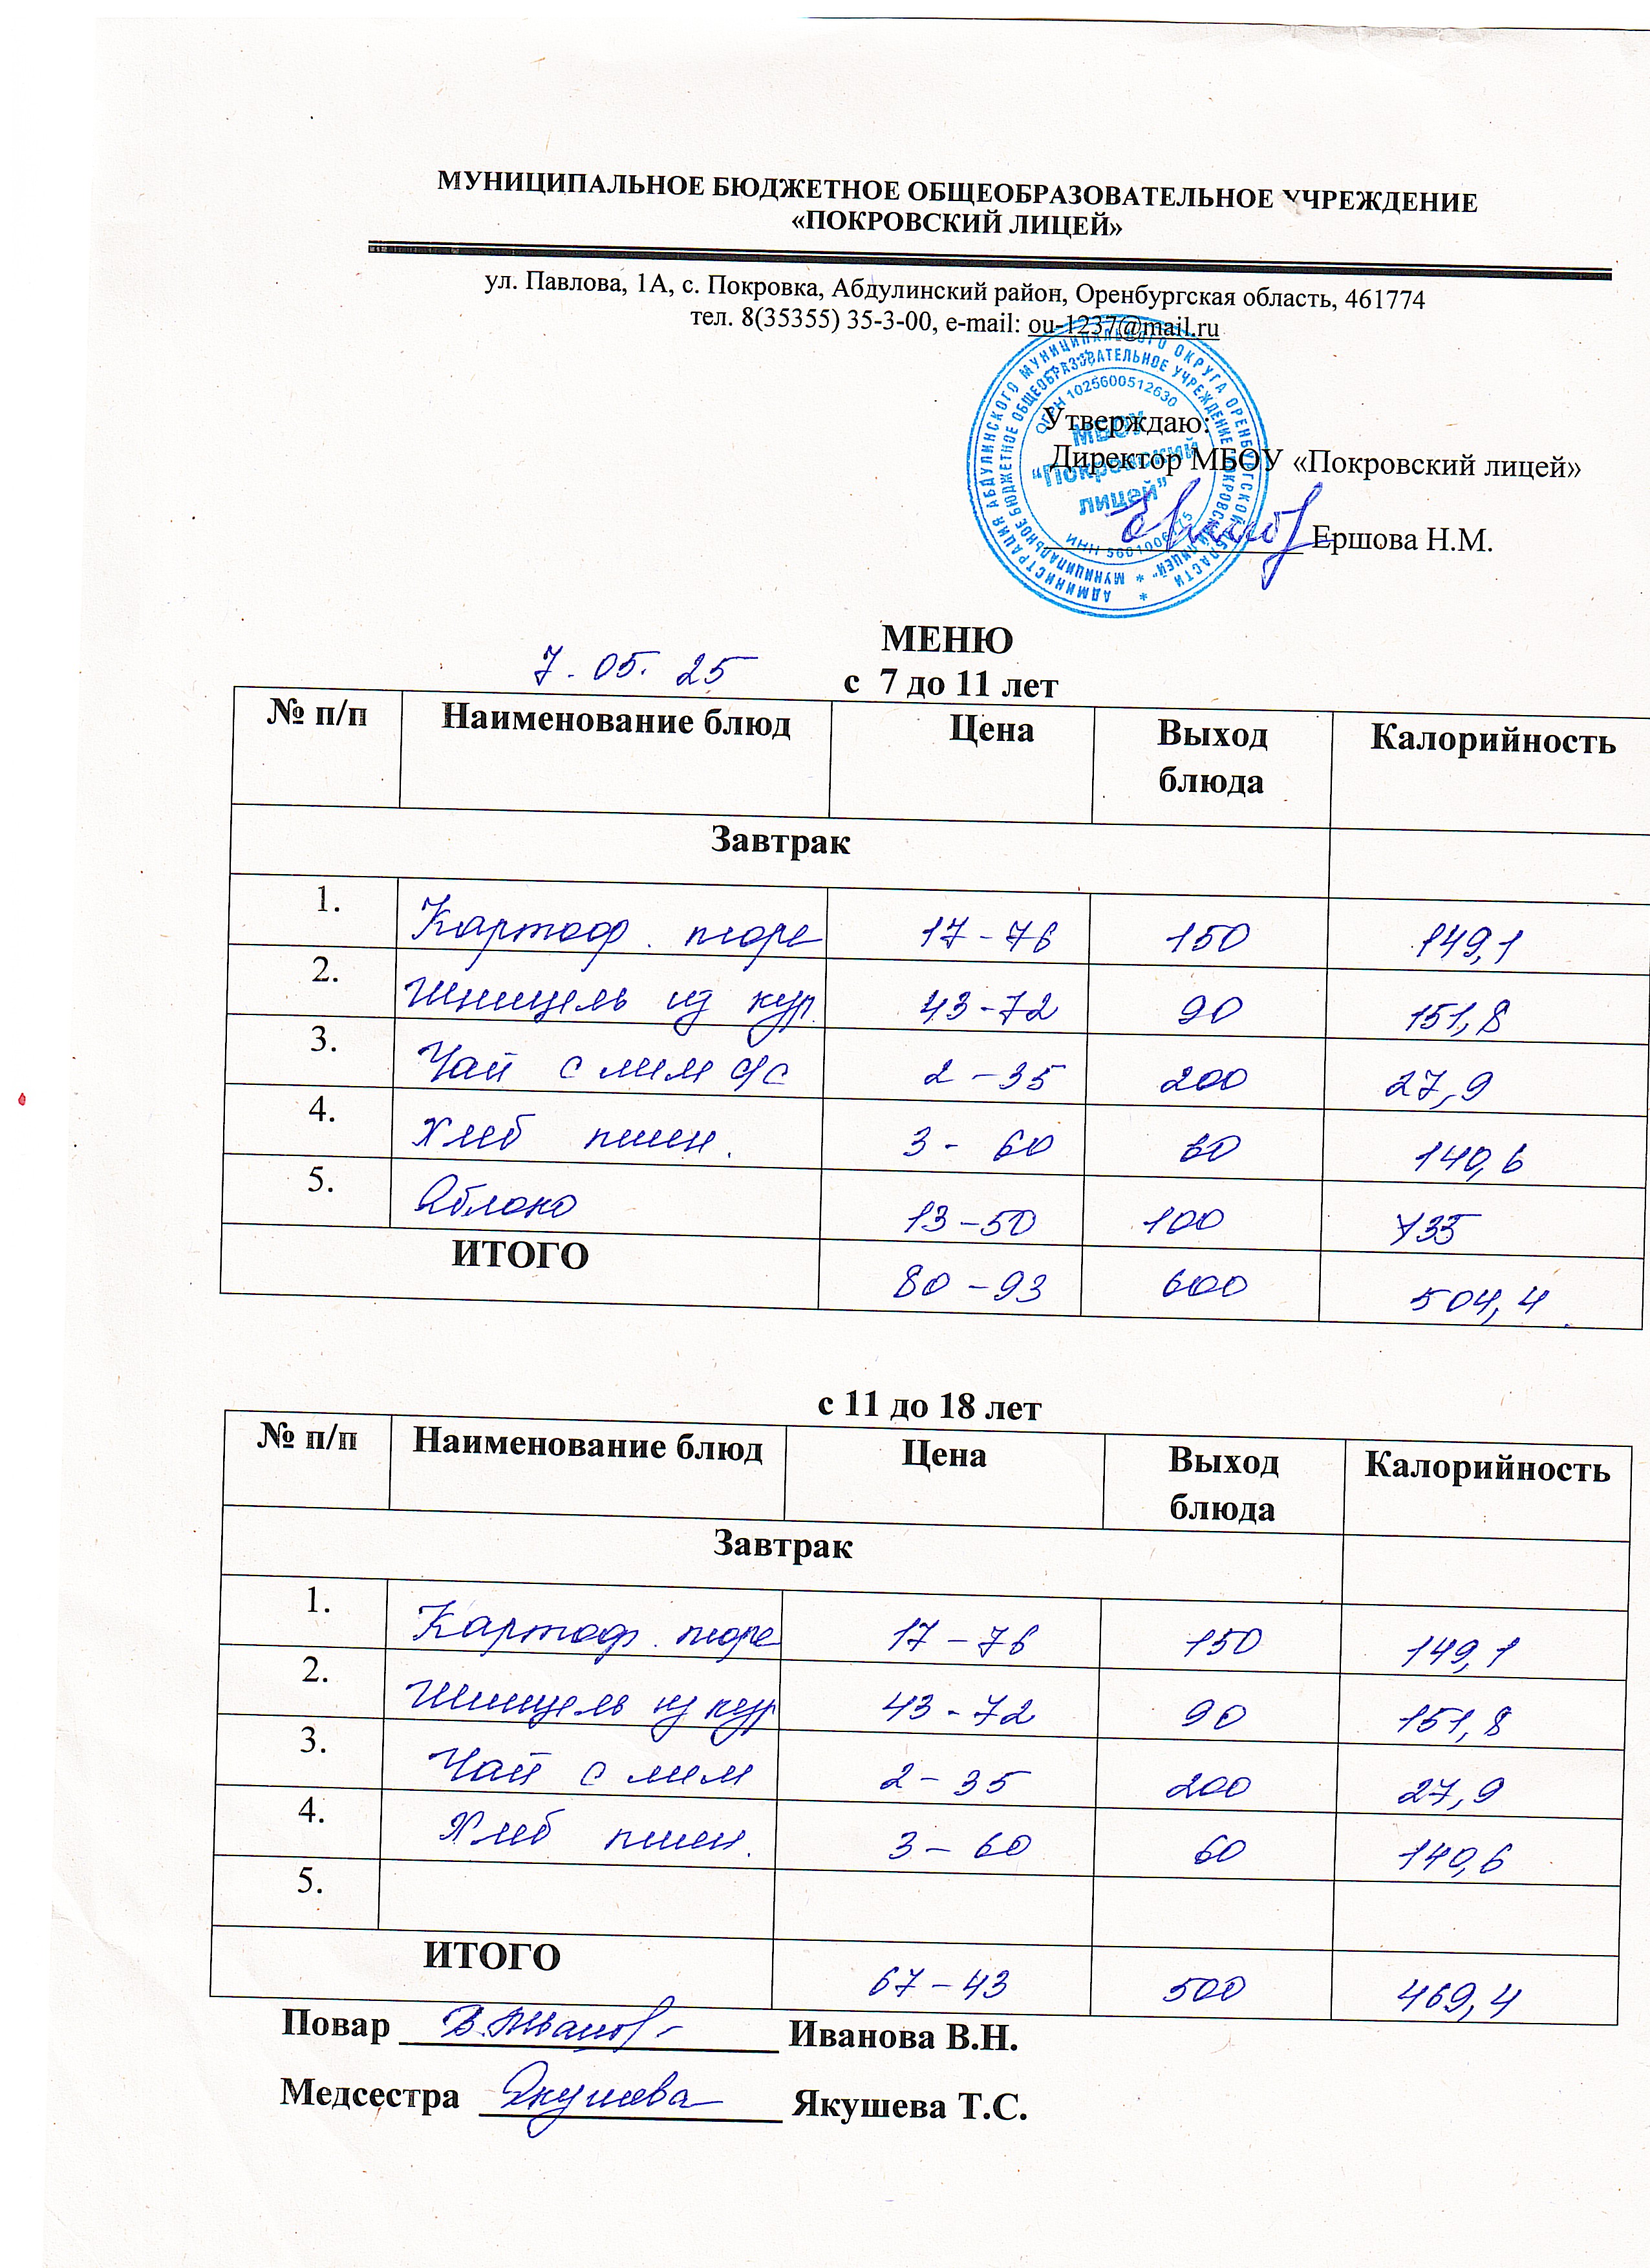 МУНИЦИПАЛЬНОЕ БЮДЖЕТНОЕ ОБЩЕОБРАЗОВАТЕЛЬНОЕ УЧРЕЖДЕНИЕ
«ПОКРОВСКИЙ ЛИЦЕЙ»
ул. Павлова, 1А, с. Покровка, Абдулинский район, Оренбургская область, 461774
тел. 8(35355) 35-3-00, e-mail: ou-1237@mail.ru
АДМИНИСТРАЦИЯ АБДУЛИНСКОГО МУНИЦИПАЛЬНОГО ОКРУГА ОРЕНБУРГСКОЙ ОБЛАСТИ *
МУНИЦИПАЛЬНОЕ БЮДЖЕТНОЕ ОБЩЕОБРАЗОВАТЕЛЬНОЕ УЧРЕЖДЕНИЕ "ПОКРОВСКИЙ ЛИЦЕЙ" *
ОГРН 1025600512630
МБОУ
"Покровский
лицей"
ИНН
Утверждаю:
Директор МБОУ «Покровский лицей»
Ершова Н.М.
МЕНЮ
7. 05. 25
с 7 до 11 лет
№ п/п Наименование блюд Цена Выход блюда Калорийность
Завтрак
1. Картоф. пюре 17-76 150 149,1
2. Шницель из кур. 43-72 90 151,8
3. Чай с лим 2-35 200 27,9
4. Хлеб пшен. 3- 60 60 140,6
5. Яблоко 13-50 100 35
ИТОГО 80-93 600 504,4
с 11 до 18 лет
№ п/п Наименование блюд Цена Выход блюда Калорийность
Завтрак
1. Картоф. пюре 17-76 150 149,1
2. Шницель из кур 43-72 90 151,8
3. Чай с лим 2-35 200 27,9
4. Хлеб пшен. 3-60 60 140,6
5.
ИТОГО 67-43 500 469,4
Повар В.Иванов Иванова В.Н.
Медсестра Якушева Якушева Т.С.